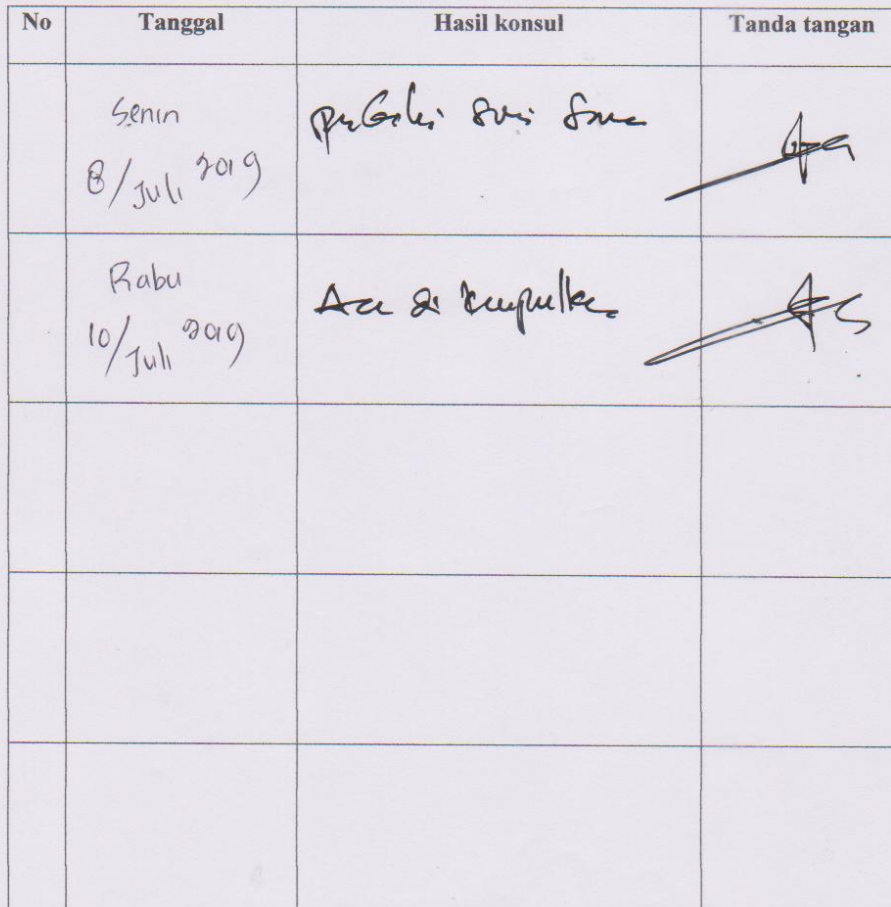 No Tanggal Hasil konsul Tanda tangan
Senin
8/Juli 2019
Rabu
10/Juli 2019
Acc di kumpulkan